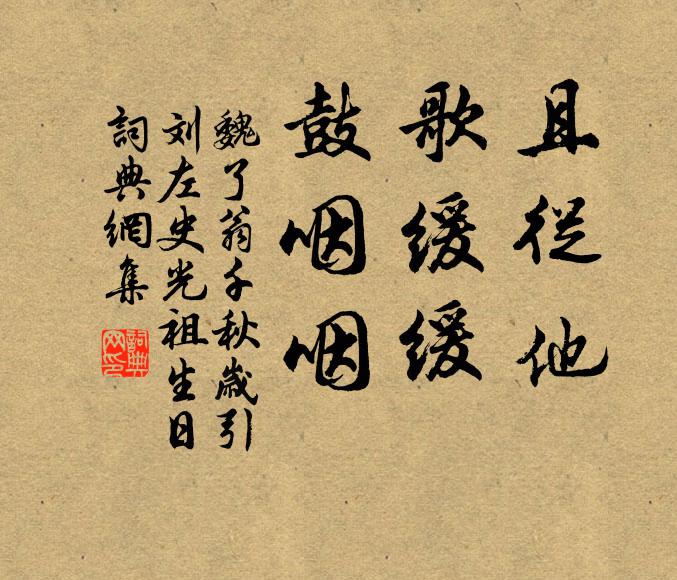 且從他
歌緩緩
鼓咽咽
魏了翁千秋歲引
刘左史光祖生日
詞典網集
詞典网印